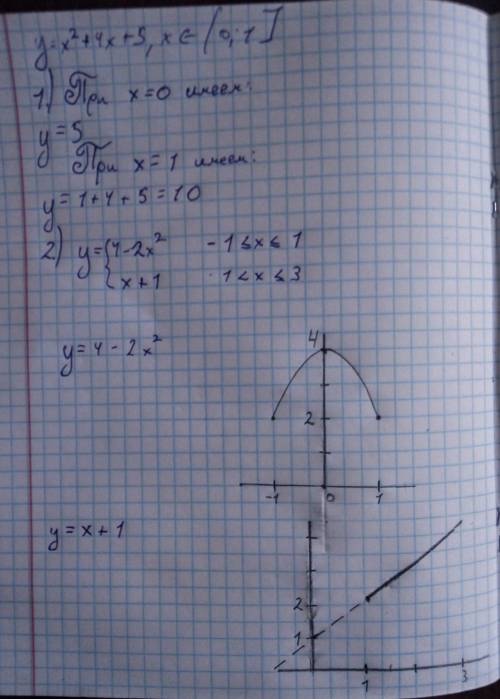 y=x²+4x+5, x∈[0;1]
1) При x=0 имеем:
y=5
При x=1 имеем:
y=1+4+5=10
2) y={4-2x² -1≤x≤1
x+1 1<x≤3
y=4-2x²
4
2
-1 0 1
y=x+1
2
1
1 3